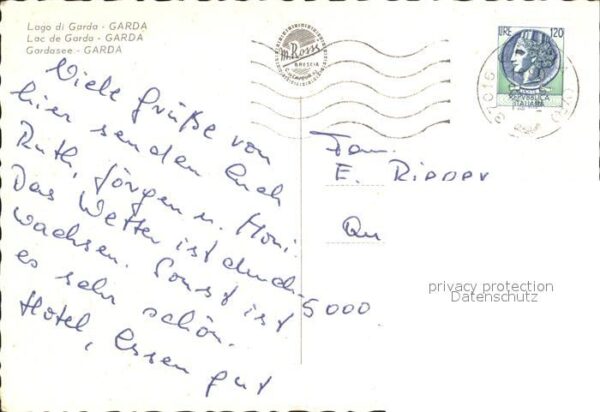 Lago di Garda - GARDA
Lac de Garda - GARDA
Gardasee - GARDA
M. Rossi
BRESCIA
LIRE 120
REPUBBLICA
ITALIANA
37016
Viele Grüße von
hier senden Euch
Ruth, Jörgen u. Honi.
Das Wetter ist durch-
wachsen. Sonst ist
es sehr schön.
Hotel, Essen gut
Fam.
E.
5000
privacy protection
Datenschutz